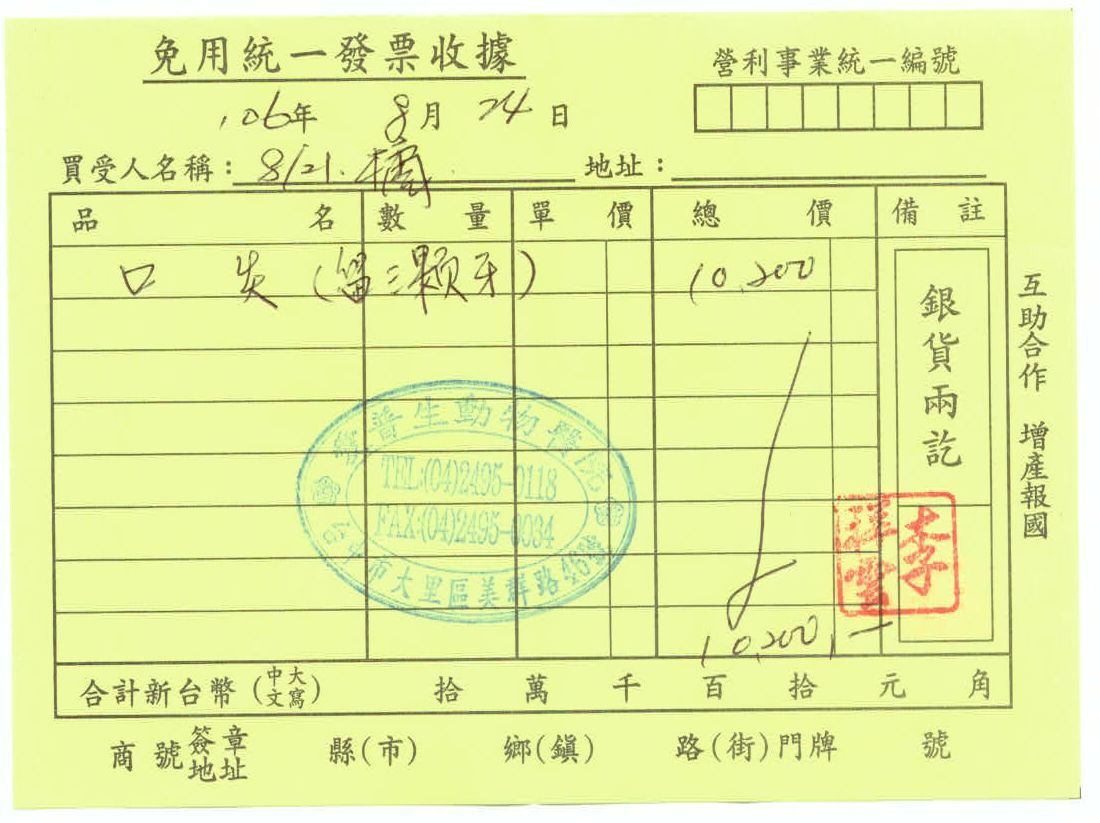 免用統一發票收據
營利事業統一編號
106年 8月 24日
買受人名稱：8/21. 橘 地址：
品名 數量 單價 總價 備註
口炎(留三顆牙) 10,200
銀貨兩訖
互助合作 增產報國
普生動物醫院
TEL:(04)2495-0118
FAX:(04)2495-0034
台中市大里區美群路46號
李
10,200,-
合計新台幣(中文大寫) 拾 萬 千 百 拾 元 角
商號簽章地址 縣(市) 鄉(鎮) 路(街)門牌 號